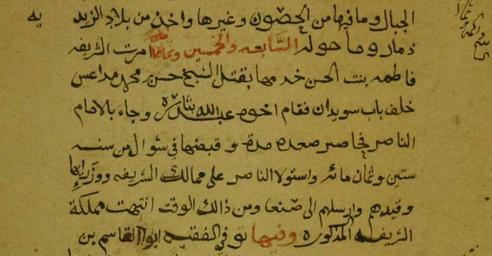 الجبال وما فيها من الحصون وغيرها واخذ من بلاد الزيديه
ذمار وما حولها السابعه والخمسين وثمانمائة امرت الشريفه
فاطمه بنت الحسن خدمها بقتل الشيخ حسن بن محمد مداعس
خلف باب سويدان فقام اخوه عبدالله بثاره وجاء بالامام
الناصر فحاصر صعده مدة وقبضها في شوال من سنه
ستين وثمان مائه واستولا الناصر على ممالك الشريفه ووزرايها
وقيدهم وارسلهم الى صنعا ومن ذالك الوقت انتهت مملكة
الشريفه المذكوره وفيها توفي الفقيه ابوالقاسم بن